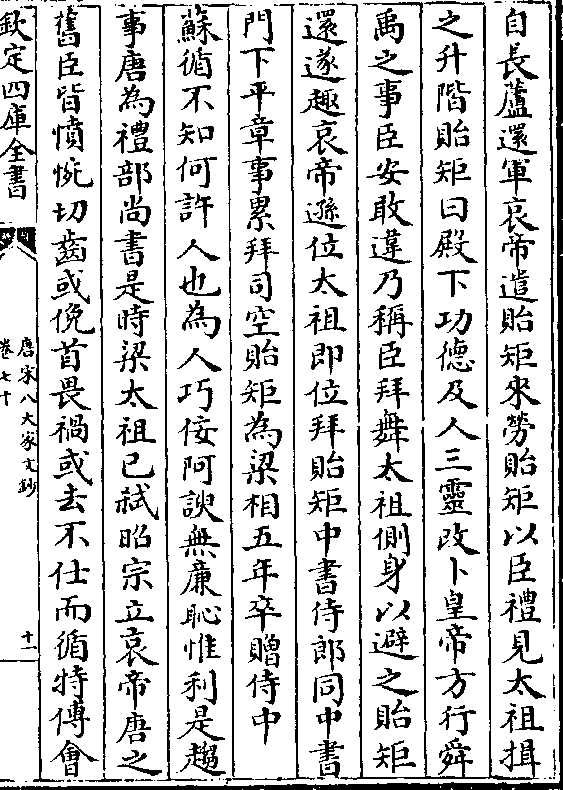 自長蘆還軍哀帝遣貽矩來勞貽矩以臣禮見太祖揖
之升階貽矩曰殿下功德及人三靈改卜皇帝方行舜
禹之事臣安敢違乃稱臣拜舞太祖側身以避之貽矩
還遂趣哀帝遜位太祖即位拜貽矩中書侍郎同中書
門下平章事累拜司空貽矩為梁相五年卒贈侍中
蘇循不知何許人也為人巧佞阿諛無廉恥惟利是趨
事唐為禮部尚書是時梁太祖已弒昭宗立哀帝唐之
舊臣皆憤惋切齒或俛首畏禍或去不仕而循特傅會
欽定四庫全書
唐宋八大家文鈔
卷七十
十一